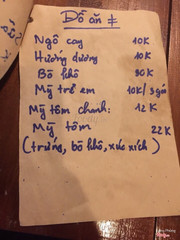 Đồ ăn ‡
Ngô cay 10K
Hướng dương 10K
Bò khô 30K
Mỳ trẻ em 10K/3gói
Mỳ tôm chanh: 12K
Mỳ tôm 22K
(trứng, bò khô, xúc xích)